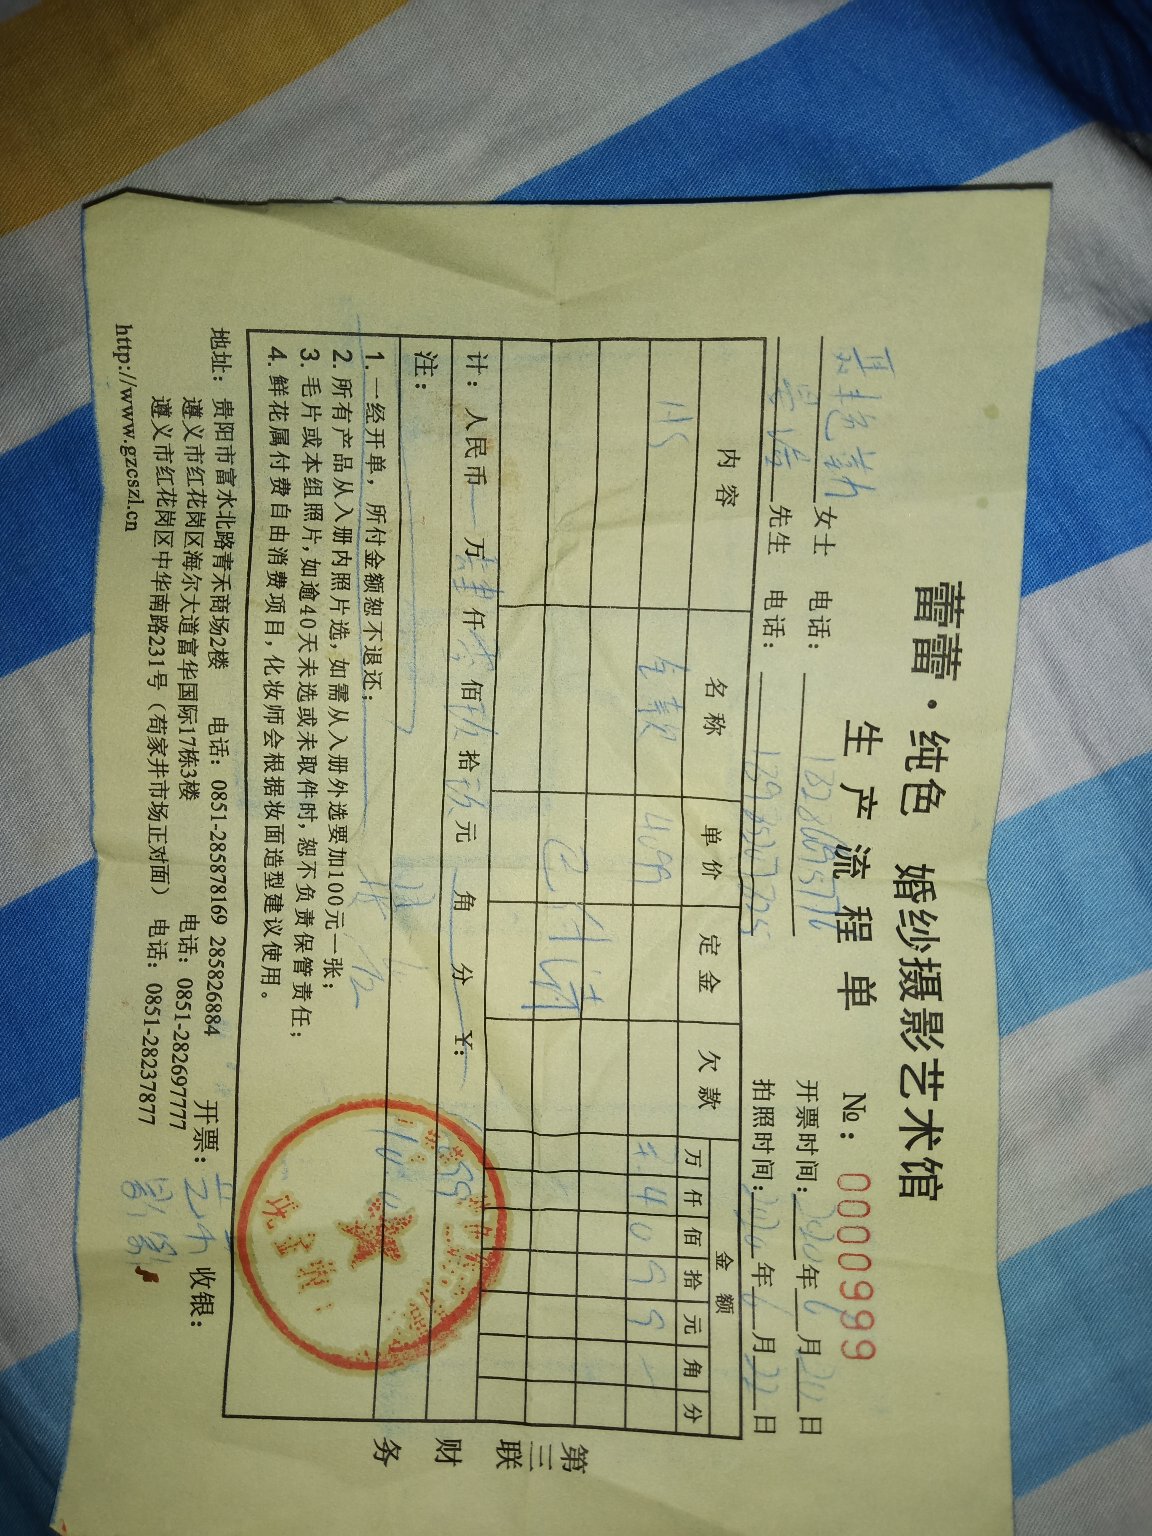 蕾蕾·纯色 婚纱摄影艺术馆
生产流程单 №: 0000999
女士 电话:
开票时间: 年6月 日
先生 电话:
拍照时间: 年6月22日
内容 名称 单价 定金 欠款 金额
万 仟 佰 拾 元 角 分
全款 4099 ¥ 4 0 9 9
已付清
计: 人民币 万肆仟零佰玖拾玖元 角 分 ¥:
注:
1. 一经开单，所付金额恕不退还；
2. 所有产品从入册内照片选，如需从入册外选要加100元一张；
3. 毛片或本组照片，如逾40天未选或未取件时，恕不负责保管责任；
4. 鲜花属付费自由消费项目，化妆师会根据妆面造型建议使用。
第三联 财务
地址: 贵阳市富水北路青禾商场2楼 电话: 0851-285878169 285826884
遵义市红花岗区海尔大道富华国际17栋3楼 电话: 0851-282697777
遵义市红花岗区中华南路231号（苟家井市场正对面） 电话: 0851-28237877
http://www.gzcszl.cn
开票: 收银: